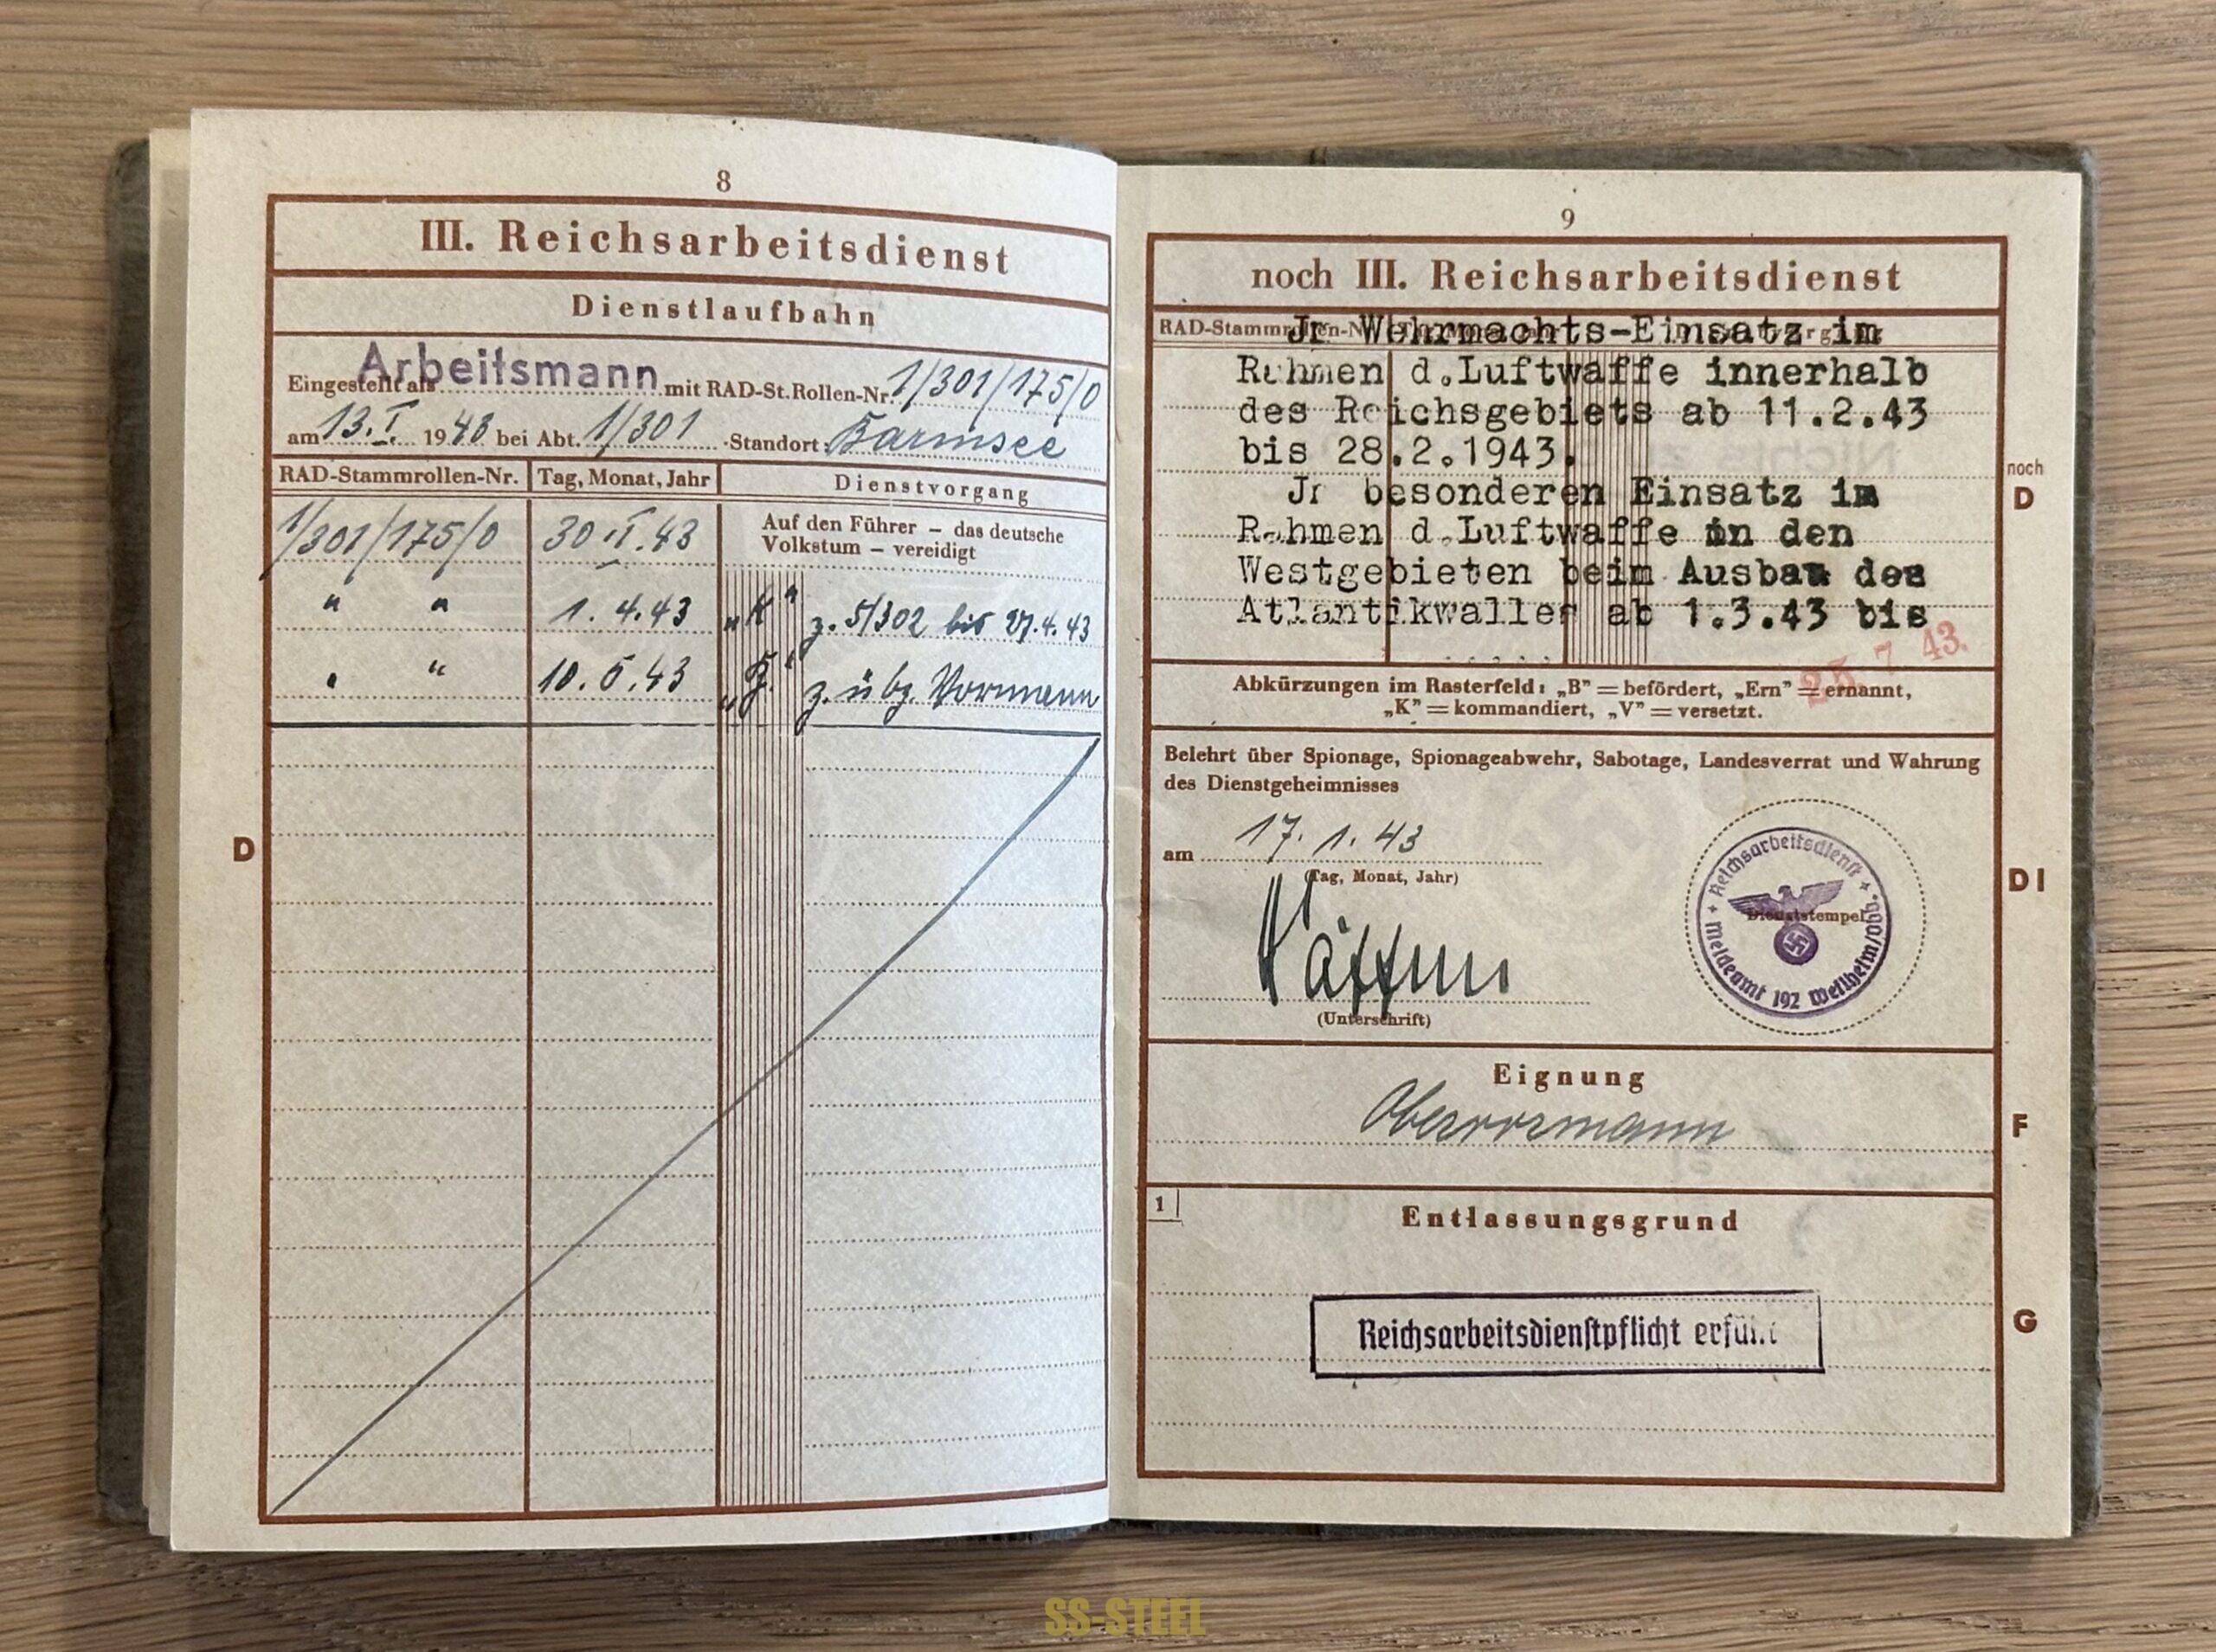 8
III. Reichsarbeitsdienst
Dienstlaufbahn
Eingestellt als Arbeitsmann mit RAD-St.Rollen-Nr. 1/301/175/0
am 13. I. 1943 bei Abt. 1/301 Standort: Barmsee
RAD-Stammrollen-Nr. Tag, Monat, Jahr Dienstvorgang
1/301/175/0 30. I. 43 Auf den Führer – das deutsche
Volkstum – vereidigt
" " 1. 4. 43 „K" z. 5/302 bis 27. 4. 43
" " 10. 5. 43 z. übz. Vormann
D
9
noch III. Reichsarbeitsdienst
RAD-Stammrollen-Nr.
Wehrmachts-Einsatz im
Rahmen d.Luftwaffe innerhalb
des Reichsgebiets ab 11.2.43
bis 28.2.1943.
besonderen Einsatz im
Rahmen d.Luftwaffe in den
Westgebieten beim Ausbau des
Atlantikwalles ab 1.3.43 bis
25. 7. 43.
noch
D
Abkürzungen im Rasterfeld: „B" = befördert, „Ern" = ernannt,
„K" = kommandiert, „V" = versetzt.
Belehrt über Spionage, Spionageabwehr, Sabotage, Landesverrat und Wahrung
des Dienstgeheimnisses
am 17. 1. 43
(Tag, Monat, Jahr)
(Unterschrift)
Dienststempel
Reichsarbeitsdienst
Meldeamt 192 Weilheim/Obb.
DI
Eignung
Obervormann
F
1
Entlassungsgrund
Reichsarbeitsdienstpflicht erfüllt
G
SS-STEEL